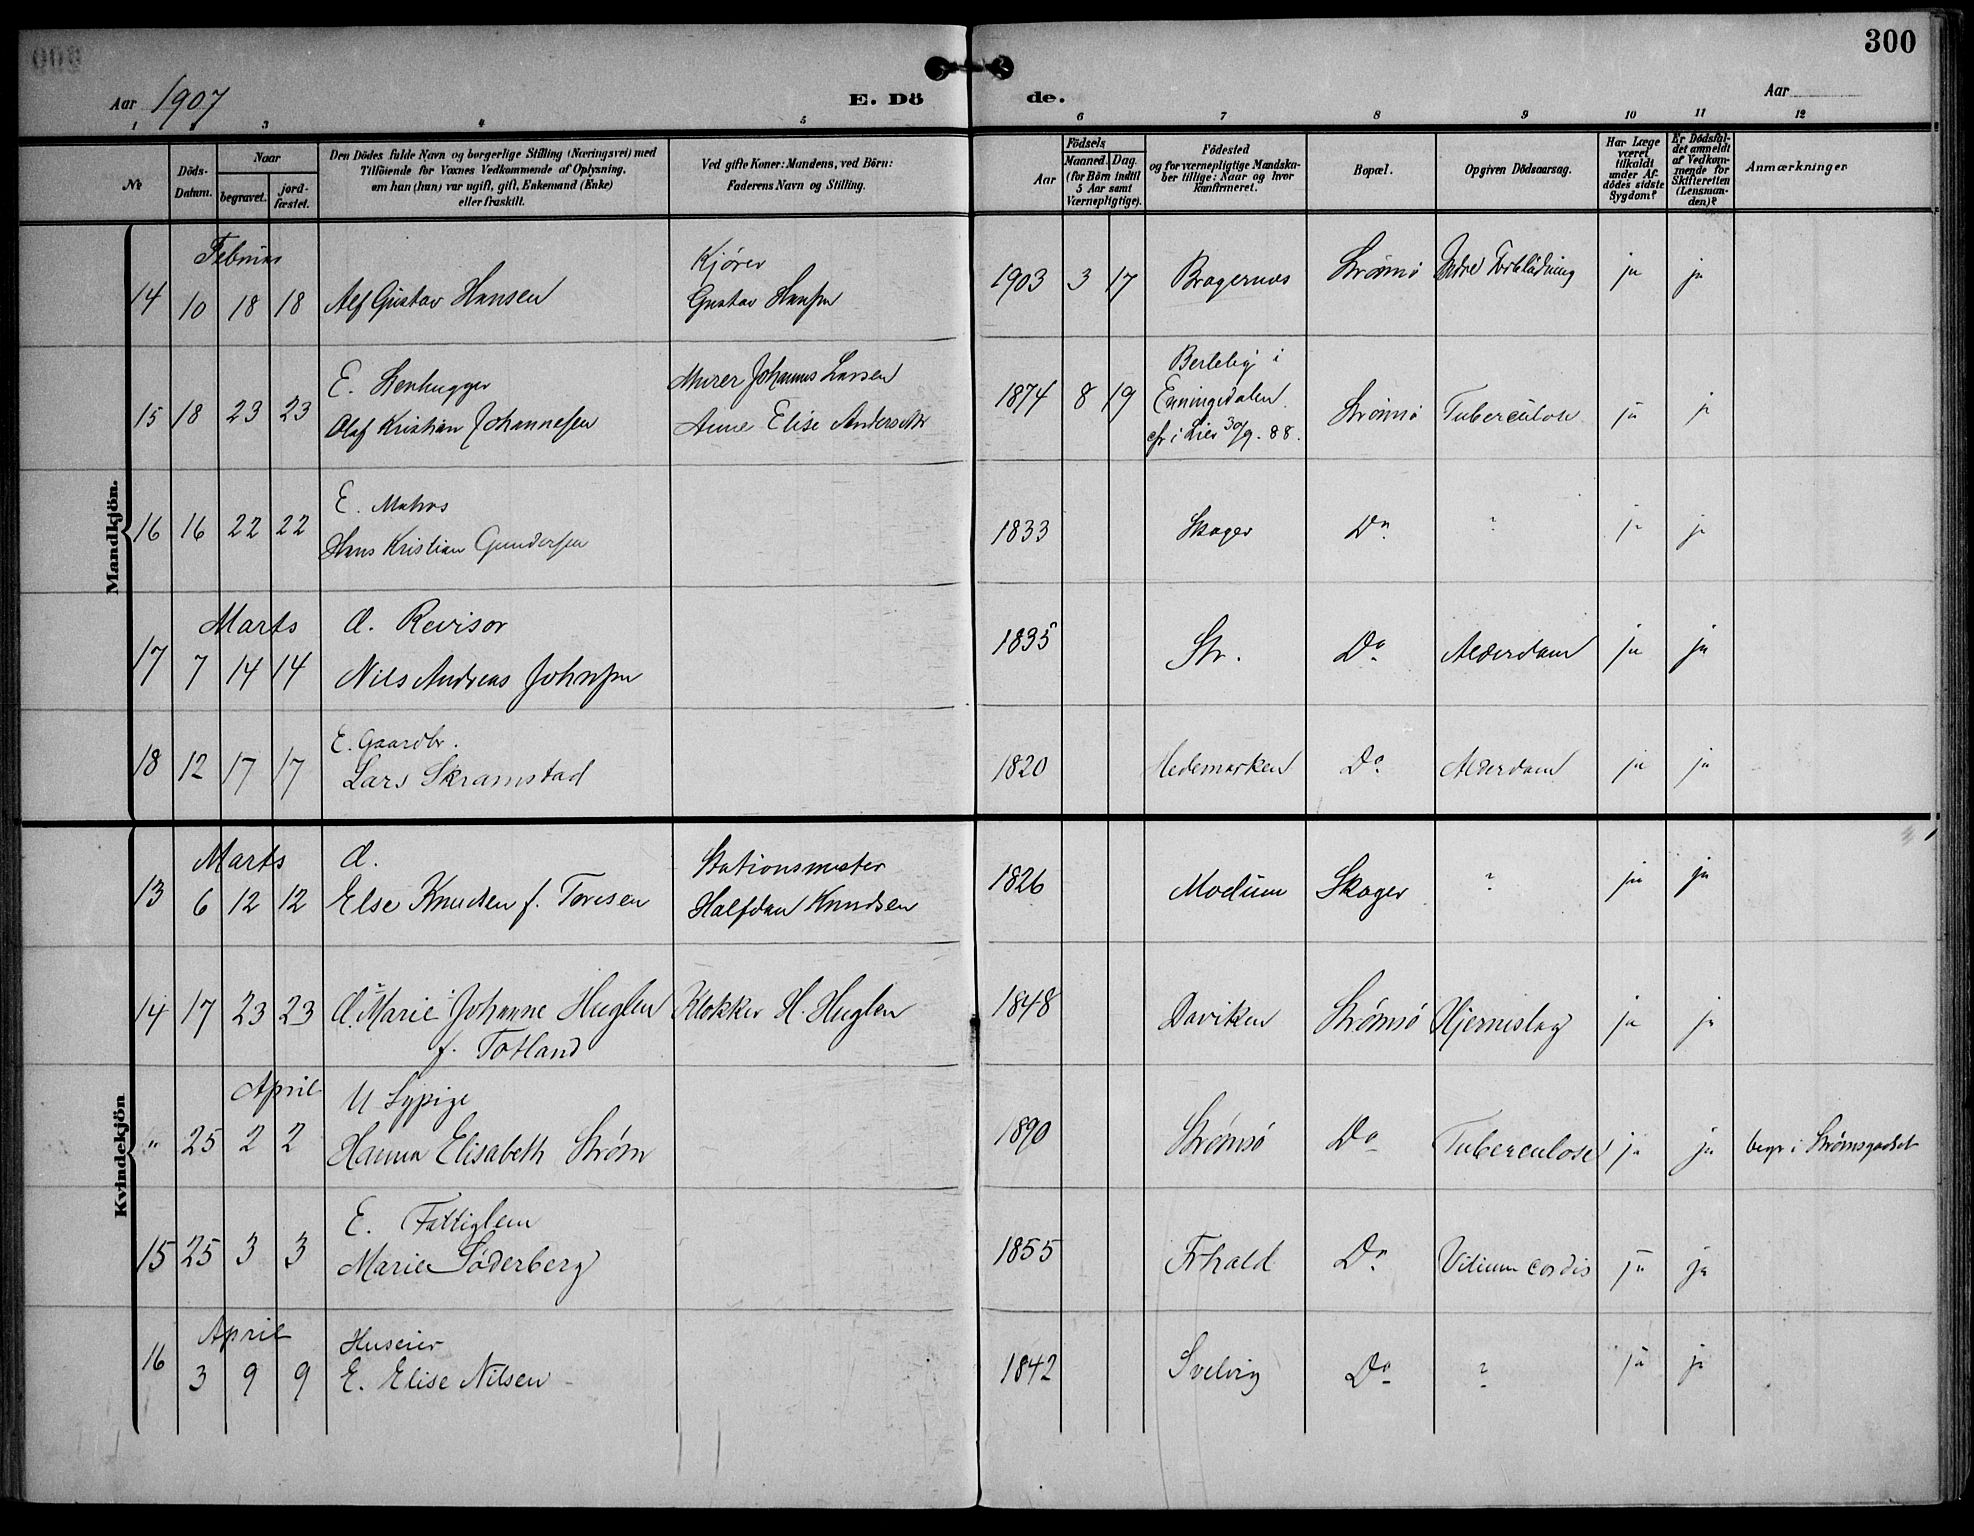 300
Aar 1907 E. Dö de. Aar
1 2 3 4 5 6 7 8 9 10 11 12
№
Döds-Datum.
Naar
begravet. jord-fæstet.
Den Dödes fulde Navn og borgerlige Stilling (Næringsvei) med
Tilföiende for Voxnes Vedkommende af Oplysning,
om han (hun) var ugift, gift, Enkemand (Enke)
eller fraskilt.
Ved gifte Koner: Mandens, ved Börn:
Faderens Navn og Stilling.
Födsels
Aar Maaned. Dag.
(for Börn indtil
5 Aar samt
Værnepligtige).
Födested
og for værnepligtige Mandska-
ber tillige: Naar og hvor
Konfirmeret.
Bopæl.
Opgiven Dödsaarsag.
Har Læge
været
tilkaldt
under Af-
dödes sidste
Sygdom?
Er Dödsfal-
det anmeldt
af Vedkom-
mende for
Skifteretten
(Lensman-
den)?
Anmærkninger
Mandkjön.
Februar
Kjører
14 10 18 18 Alf Gustav Hansen Gustav Hansen 1903 3 17 Bragernæs Strømsø Indre Forblødning ja ja
E. Stenhugger Murer Johannes Larsen Berleby i
15 18 23 23 Olaf Kristian Johannesen Anne Elise Andersdtr 1874 8 19 Enningdalen Strømsø Tuberculose ja ja
cfr i Lier 30/9. 88.
E. Matros
16 16 22 22 Hans Kristian Gundersen 1833 Skoger Do ? ja ja
Marts G. Revisor
17 7 14 14 Nils Andreas Johnsen 1835 Str. Do Alderdom ja ja
E. Gaardbr.
18 12 17 17 Lars Skramstad 1820 Hedemarken Do Alderdom ja ja
Kvindekjön
Marts G. Stationsmester
13 6 12 12 Else Knudsen f. Toresen Halfdan Knudsen 1826 Modum Skoger ? ja ja
14 17 23 23 G. Marie Johanne Huglen Klokker H. Huglen 1848 Daviken Strømsø Hjerneslag ja ja
f. Totland
April U Sypige
" 25 2 2 Hanna Elisabeth Strøm 1890 Strømsø Do Tuberculose ja ja begr i Strømsgodset
E. Fattiglem
15 25 3 3 Marie Søderberg 1855 Frhald Do Vitium cordis ja ja
April Huseier
16 3 9 9 E. Elise Nilsen 1842 Svelvig Do ? ja ja